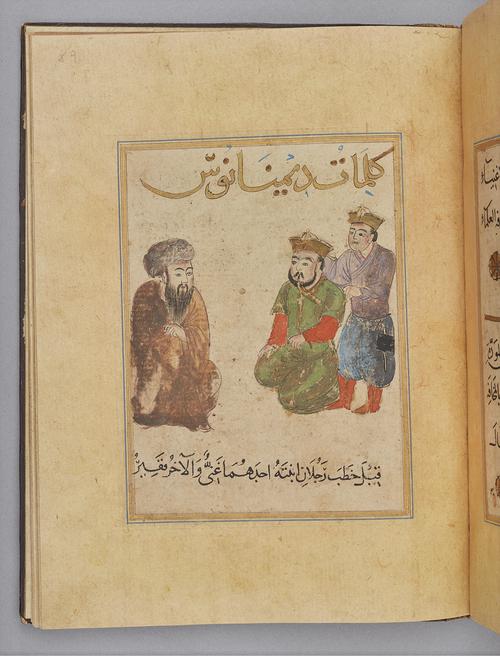 كلمات ديمينانوس
قيل خطب رجلان ابنته احدهما غنيٌّ والآخر فقيرٌ